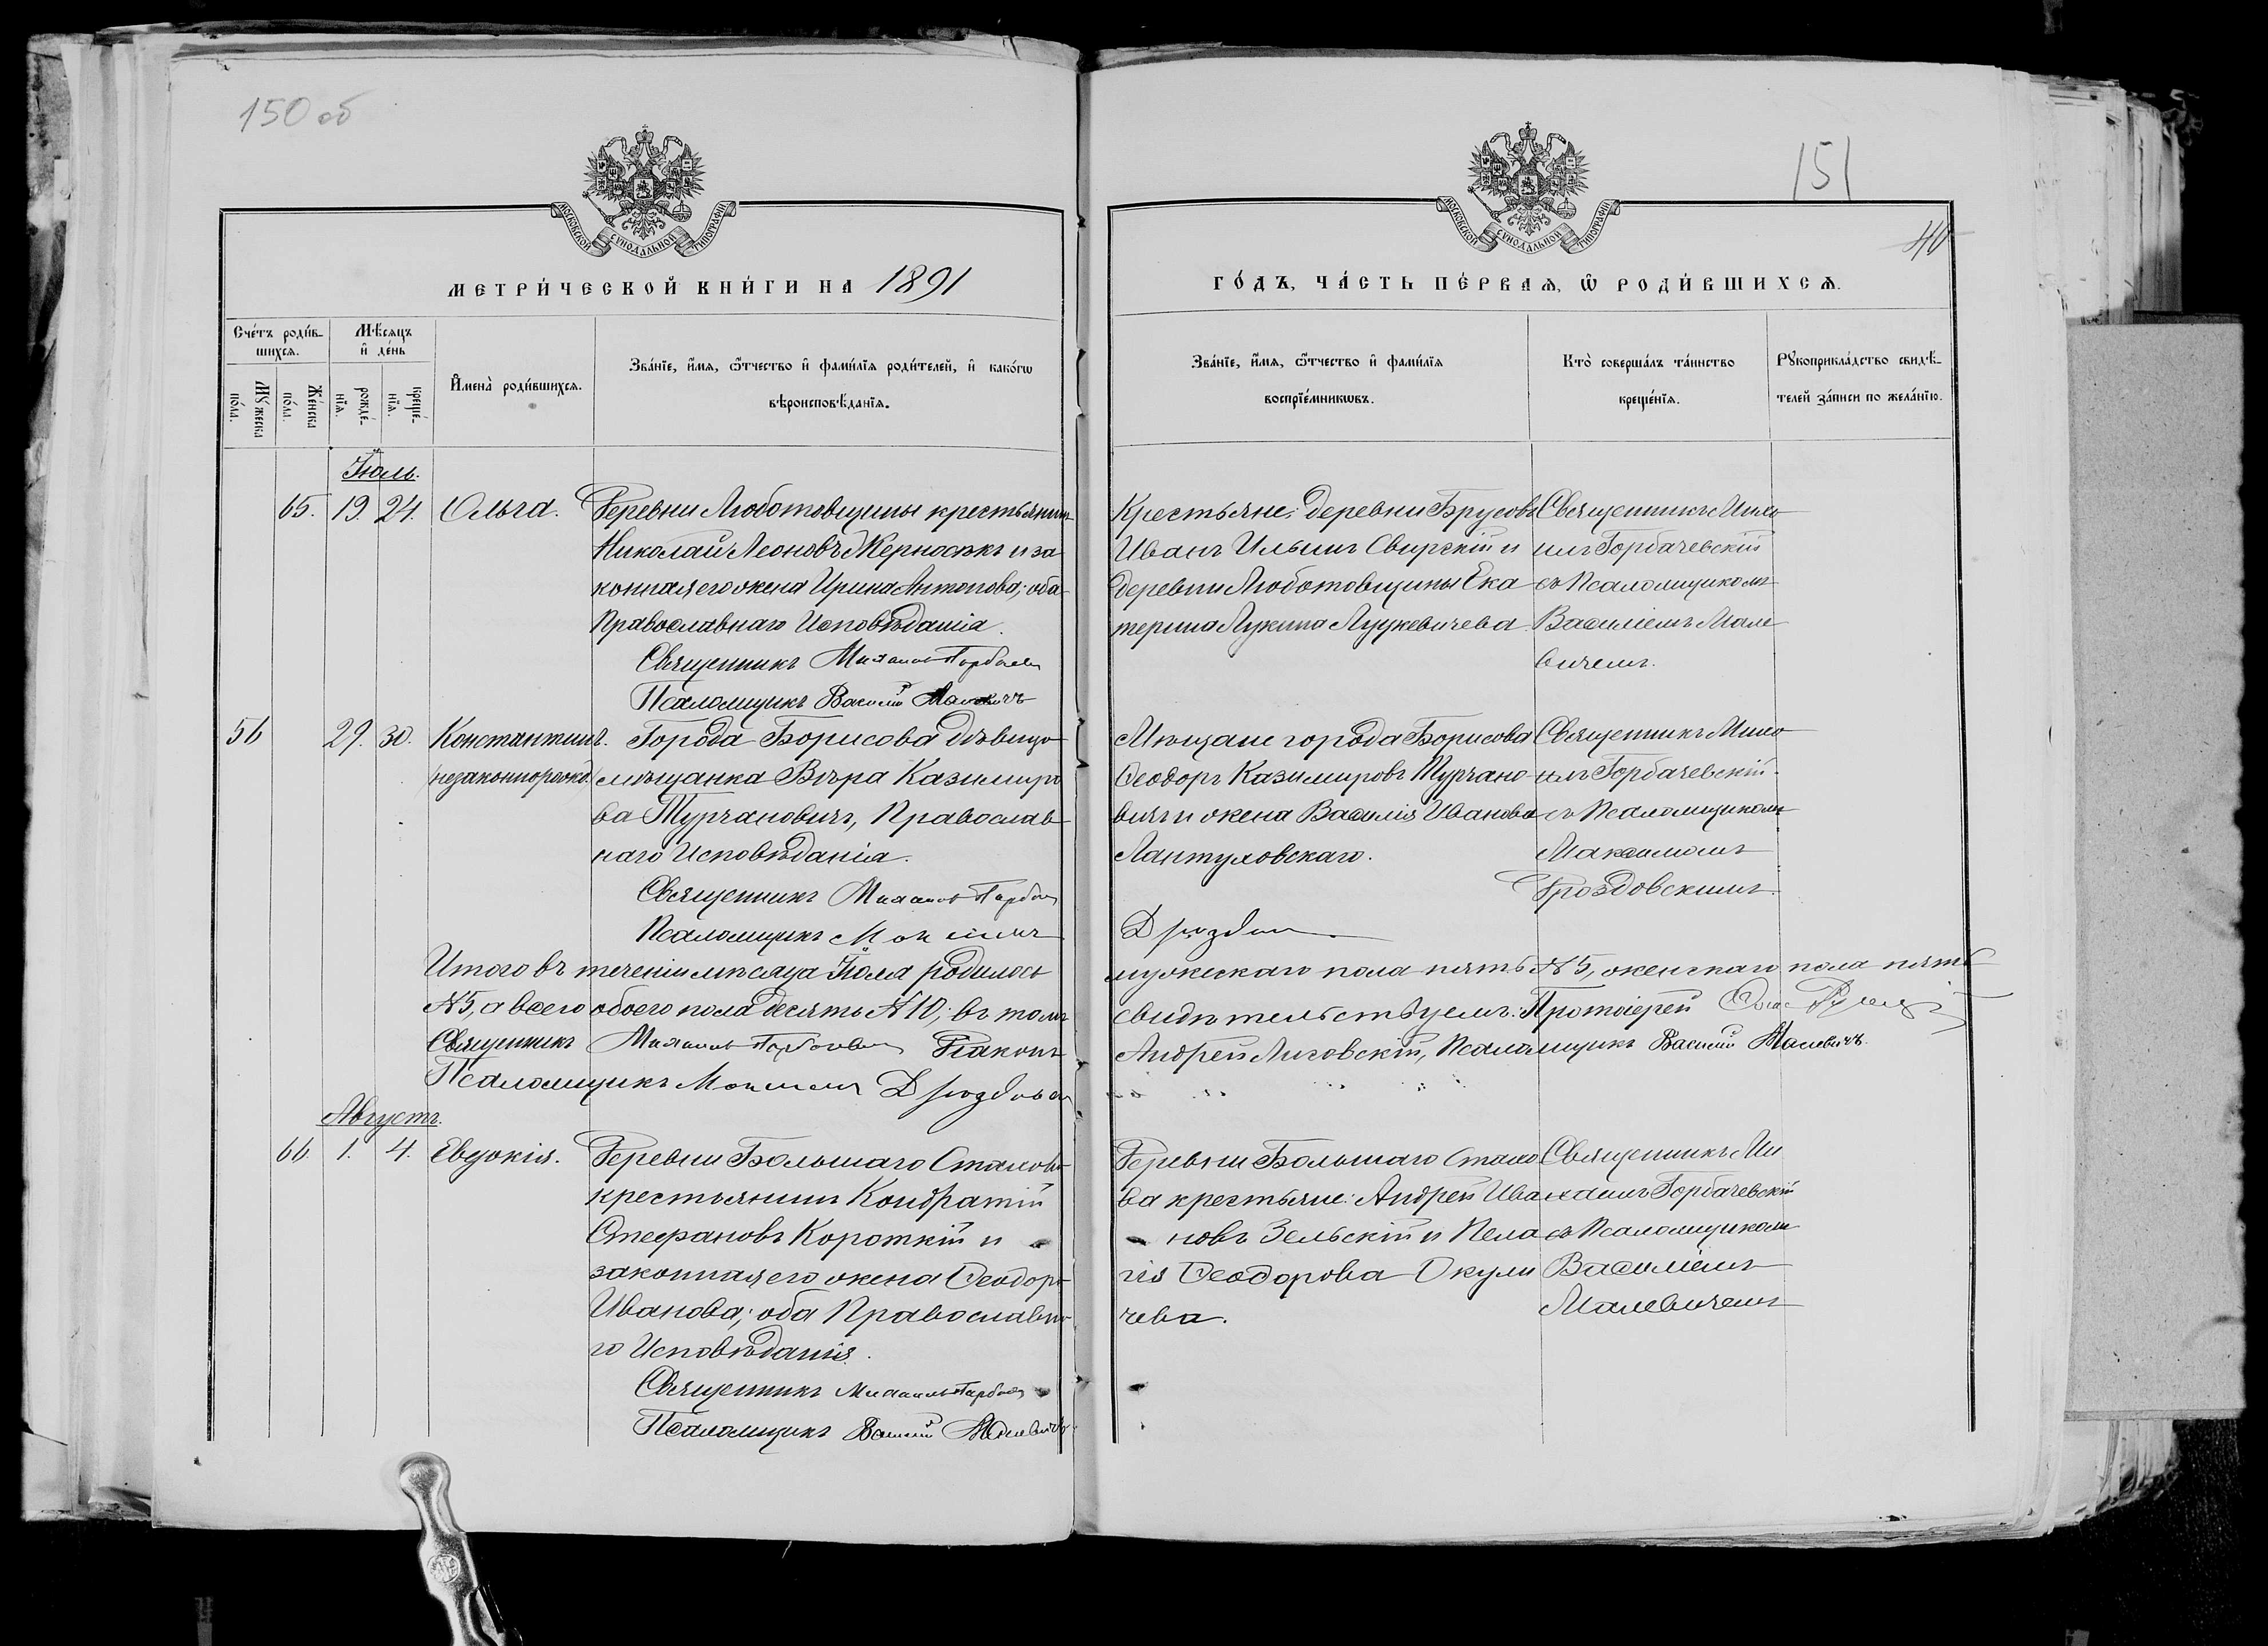 150 об
151
40
МОСКОВСКОЙ СѴНОДАЛЬНОЙ ТИПОГРАФІИ
МОСКОВСКОЙ СѴНОДАЛЬНОЙ ТИПОГРАФІИ
МЕТРИ́ЧЕСКОЙ КНИ́ГИ НА 1891
ГО́ДЪ, ЧА́СТЬ ПЕ́РВАѦ, Ѡ҆ РОДИ́ВШИХСѦ.
Сче́тъ роди́в-
шихсѧ.
Мꙋжеска
по́ла.
Же́нска
по́ла.
Мѣ́сѧцъ
и҆ де́нь
рожде́-
нїѧ.
креще́-
нїѧ.
И҆мена̀ роди́вшихсѧ.
Зва́нїе, и҆́мѧ, ѻ҆́тчество и҆ фами́лїѧ роди́телей, и҆ како́гѡ
вѣроисповѣ́данїѧ.
Зва́нїе, и҆́мѧ, ѻ҆́тчество и҆ фами́лїѧ
воспрїе́мникѡвъ.
Кто̀ соверша́лъ та́инство
креще́нїѧ.
Рꙋкоприкла́дство свидѣ́-
телей за́писи по жела́нїю.
Іюль.
65. 19. 24. Ольга.
Деревни Люботовщины крестьянинъ
Николай Леоновъ Жерносѣкъ и за
конная его жена Ирина Антонова; оба
Православнаго Исповѣданія.
Священникъ Михаилъ Горбачев
Псаломщикъ Василій Малевичъ
Крестьяне: деревни Брусовъ
Иванъ Ильинъ Свирскій и
деревни Люботовщины Ека
терина Лукина Луцкевичева.
Священникъ Миха
илъ Горбачевскій
съ Псаломщикомъ
Василіемъ Мале
вичемъ.
56 29. 30. Константинъ.
незаконнорожд.
Города Борисова дѣвица
мѣщанка Вѣра Казимиро
ва Турчановичъ, Православ
наго Исповѣданія.
Священникъ Михаилъ Горбач
Псаломщикъ Максимъ
Мѣщане города Борисова
Ѳеодоръ Казимировъ Турчано
вичъ и жена Василія Иванова
Лантуховскаго.
Дрозdов
Священникъ Миха
илъ Горбачевскій
съ Псаломщикомъ
Максимомъ
Дроздовскимъ.
Итого въ теченіи мѣсяца Іюля родилось мужескаго пола пять №5, женскаго пола пять
№5, а всего обоего пола десять №10; въ томъ свидѣтельствуемъ: Протоіерей
Священникъ Михаилъ Горбачев Діаконъ Андрей Лисовскій, Псаломщикъ Василій Малевичъ.
Псаломщикъ Максимъ Дроздовск
Августъ.
66 1. 4. Евдокія.
Деревни Большаго Стахова
крестьянинъ Кондратій
Стефановъ Короткій и
законная его жена Ѳеодора
Иванова; оба Православна
го Исповѣданія.
Священникъ Михаилъ Горбач
Псаломщикъ Василій Малевичъ
Деревни Большаго Стахо
ва крестьяне: Андрей Ива
новъ Зельскій и Пела
гія Ѳеодорова Окули
чева.
Священникъ Ми
хаилъ Горбачевскій
съ Псаломщикомъ
Василіемъ
Малевичемъ